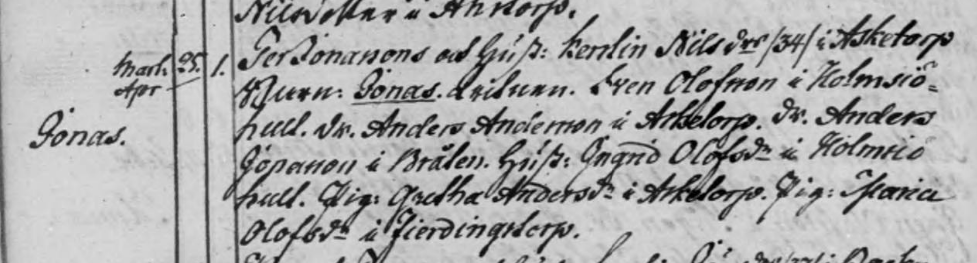 Nilsdotter i Anstorp.
Mart. 25. 1. Per Jonassons och Hust: Kerstin Nils dr /34/ i Asketorp
Apr
Barn: Jonas. Sven Olofsson i Holmsiö=
Jonas.
hult. Dr. Anders Andersson i Asketorp. Dr. Anders
i Brålen. Hust: Ingrid Olofsdr i Holmsiö
hult. Pig: Gretha Andersdr i Asketorp. Pig: Maria
Olofsdr i Fierdingstorp.